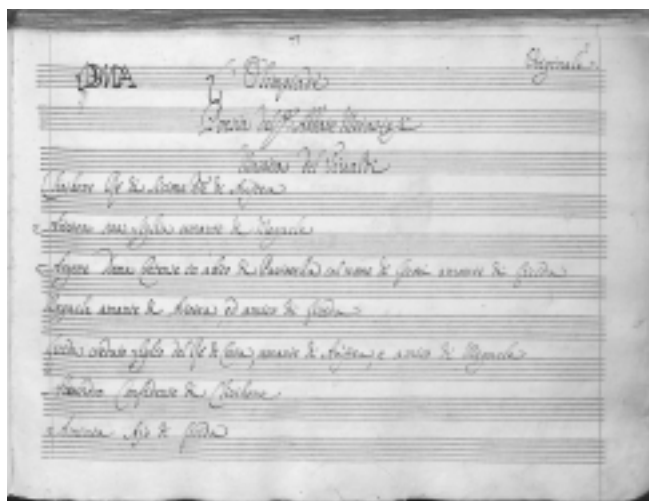 Originale
L'Olimpiade
Poesia del Abbate
Musica del Vivaldi
Clistene Re di
Aristea sua figlia amante di Megacle
Argene Dama in abito di Pastorella col nome di amante di Licida
Megacle amante di Aristea ed amico di Licida
Licida creduto figlio del Re di Creta, amante di Aristea, e amico di Megacle
Confidente di Clistene
Aminta Ajo di Licida